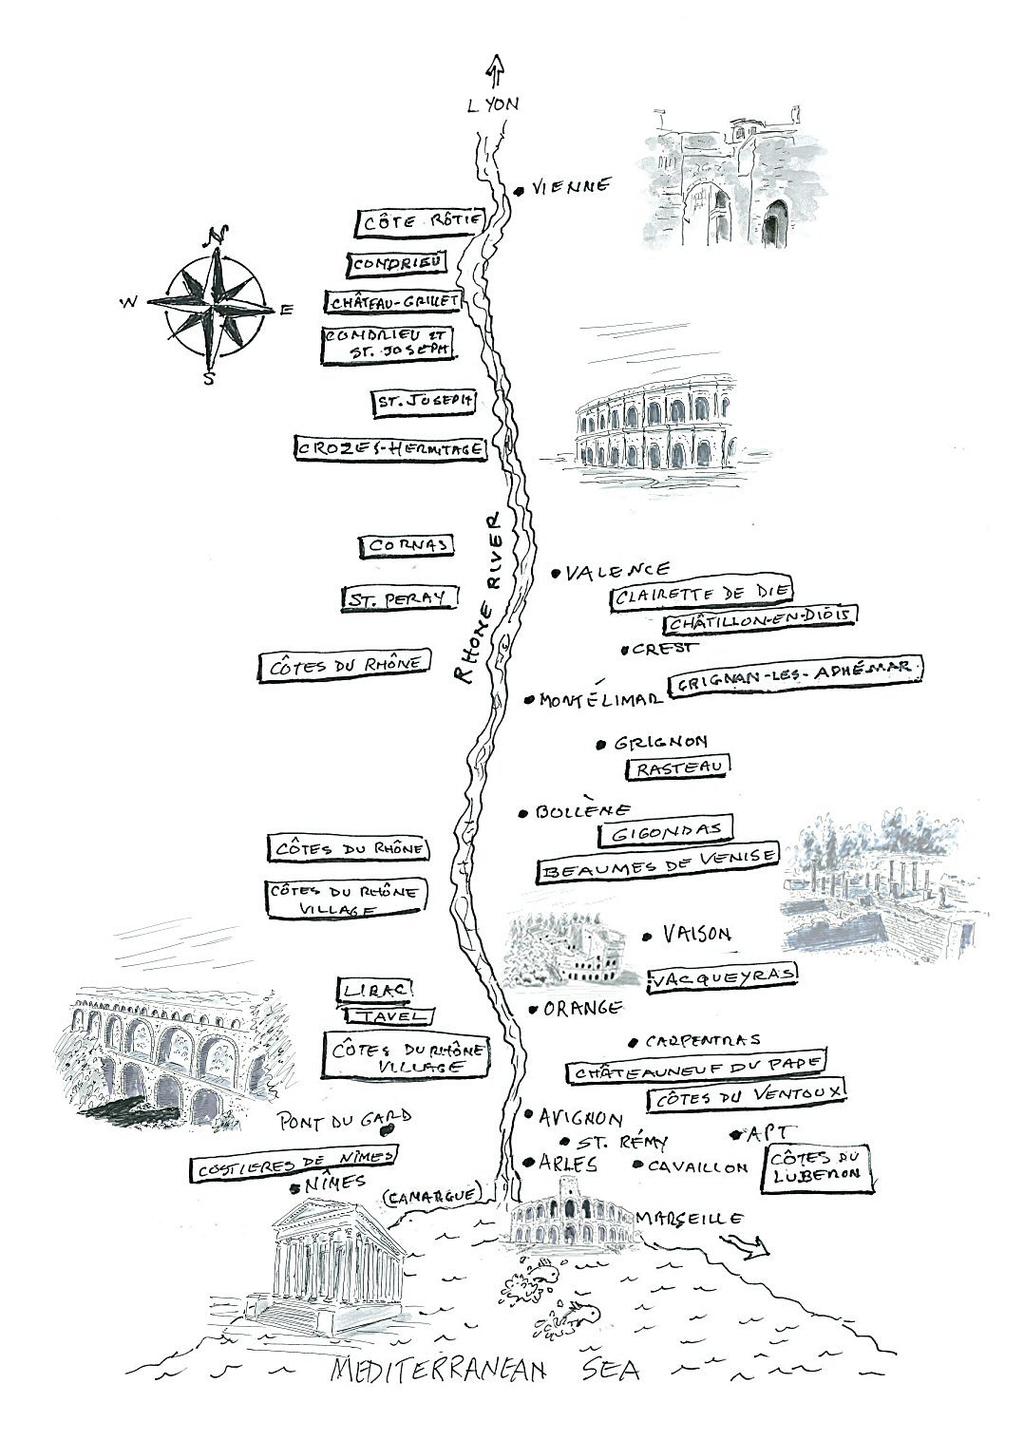 LYON
VIENNE
CÔTE RÔTIE
CONDRIEU
N
W
E
S
CHÂTEAU-GRILLET
CONDRIEU ET
ST. JOSEPH
ST. JOSEPH
CROZES-HERMITAGE
RHONE RIVER
CORNAS
VALENCE
ST. PERAY
CLAIRETTE DE DIE
CHÂTILLON-EN-DIOIS
CREST
CÔTES DU RHÔNE
GRIGNAN-LES-ADHÉMAR
MONTÉLIMAR
GRIGNON
RASTEAU
BOLLÈNE
GIGONDAS
CÔTES DU RHÔNE
BEAUMES DE VENISE
CÔTES DU RHÔNE
VILLAGE
VAISON
VACQUEYRAS
LIRAC
ORANGE
TAVEL
CÔTES DU RHÔNE
VILLAGE
CARPENTRAS
CHÂTEAUNEUF DU PAPE
CÔTES DU VENTOUX
PONT DU GARD
AVIGNON
ST. RÉMY
APT
COSTIERES DE NÎMES
ARLES
CAVAILLON
CÔTES DU
LUBERON
NÎMES
(CAMARGUE)
MARSEILLE
MEDITERRANEAN SEA